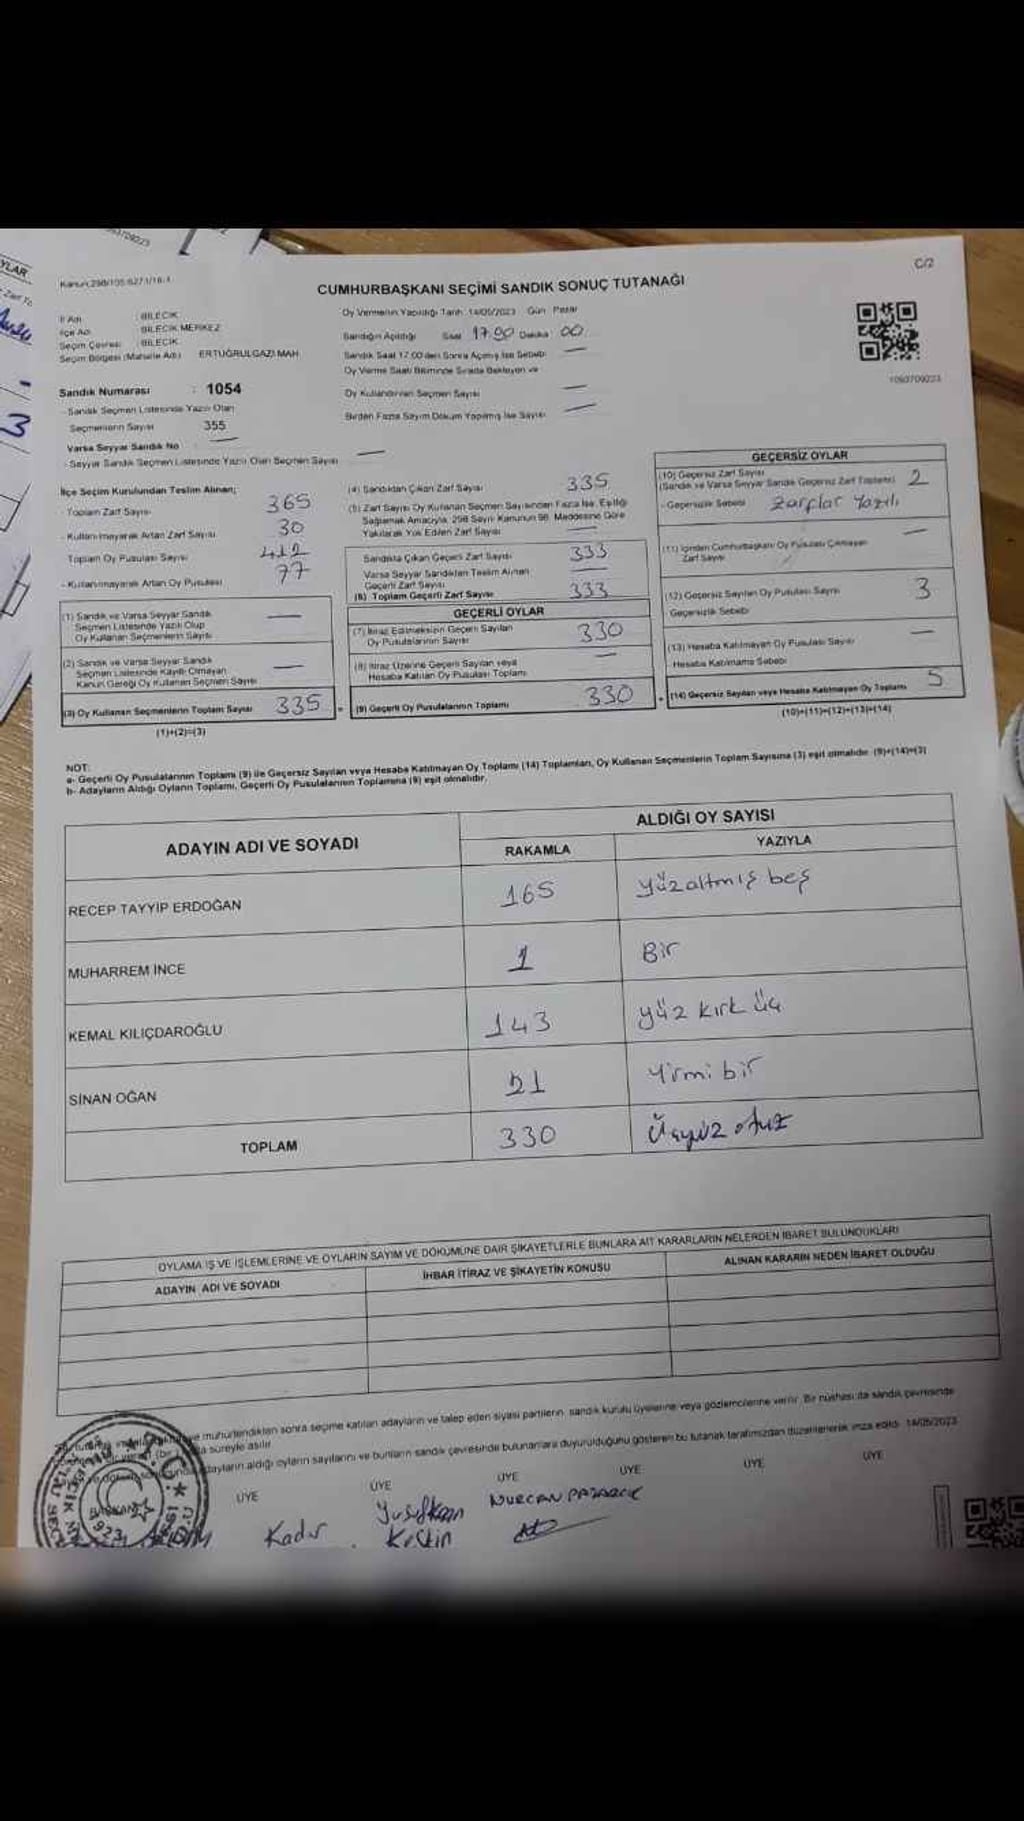 C/2
Kanun:298/105 6271/16-1
CUMHURBAŞKANI SEÇİMİ SANDIK SONUÇ TUTANAĞI
İl Adı BİLECİK
İlçe Adı BİLECİK MERKEZ
Seçim Çevresi BİLECİK
Seçim Bölgesi (Mahalle Adı) ERTUĞRULGAZİ MAH
Sandık Numarası : 1054
- Sandık Seçmen Listesinde Yazılı Olan
Seçmenlerin Sayısı 355
Varsa Seyyar Sandık No —
- Seyyar Sandık Seçmen Listesinde Yazılı Olan Seçmen Sayısı —
Oy Vermenin Yapıldığı Tarih 14/05/2023 Gün Pazar
Sandığın Açıldığı Saat 17.00 Dakika 00
Sandık Saat 17.00'den Sonra Açılmış İse Sebebi —
Oy Verme Saati Bitiminde Sırada Bekleyen ve
Oy Kullandırılan Seçmen Sayısı —
Birden Fazla Sayım Döküm Yapılmış İse Sayısı —
1093709223
İlçe Seçim Kurulundan Teslim Alınan;
- Toplam Zarf Sayısı 365
- Kullanılmayarak Artan Zarf Sayısı 30
Toplam Oy Pusulası Sayısı 412
- Kullanılmayarak Artan Oy Pusulası 77
(1) Sandık ve Varsa Seyyar Sandık
Seçmen Listesinde Yazılı Olup
Oy Kullanan Seçmenlerin Sayısı —
(2) Sandık ve Varsa Seyyar Sandık
Seçmen Listesinde Kayıtlı Olmayan
Kanun Gereği Oy Kullanan Seçmen Sayısı —
(3) Oy Kullanan Seçmenlerin Toplam Sayısı 335
(1)+(2)=(3)
(4) Sandıktan Çıkan Zarf Sayısı 335
(5) Zarf Sayısı Oy Kullanan Seçmen Sayısından Fazla İse, Eşitliği
Sağlamak Amacıyla, 298 Sayılı Kanunun 98. Maddesine Göre
Yakılarak Yok Edilen Zarf Sayısı —
Sandıkta Çıkan Geçerli Zarf Sayısı 333
Varsa Seyyar Sandıktan Teslim Alınan
Geçerli Zarf Sayısı —
(6) Toplam Geçerli Zarf Sayısı 333
GEÇERLİ OYLAR
(7) İtiraz Edilmeksizin Geçerli Sayılan
Oy Pusulalarının Sayısı 330
(8) İtiraz Üzerine Geçerli Sayılan veya
Hesaba Katılan Oy Pusulası Toplamı —
(9) Geçerli Oy Pusulalarının Toplamı 330
GEÇERSİZ OYLAR
(10) Geçersiz Zarf Sayısı
(Sandık ve Varsa Seyyar Sandık Geçersiz Zarf Toplamı) 2
- Geçersizlik Sebebi Zarflar Yazılı
(11) İçinden Cumhurbaşkanı Oy Pusulası Çıkmayan
Zarf Sayısı —
(12) Geçersiz Sayılan Oy Pusulası Sayısı 3
Geçersizlik Sebebi
(13) Hesaba Katılmayan Oy Pusulası Sayısı —
Hesaba Katılmama Sebebi
(14) Geçersiz Sayılan veya Hesaba Katılmayan Oy Toplamı 5
(10)+(11)+(12)+(13)=(14)
NOT:
a- Geçerli Oy Pusulalarının Toplamı (9) ile Geçersiz Sayılan veya Hesaba Katılmayan Oy Toplamı (14) Toplamları, Oy Kullanan Seçmenlerin Toplam Sayısına (3) eşit olmalıdır. (9)+(14)=(3)
b- Adayların Aldığı Oyların Toplamı, Geçerli Oy Pusulalarının Toplamına (9) eşit olmalıdır.
ADAYIN ADI VE SOYADI ALDIĞI OY SAYISI
RAKAMLA YAZIYLA
RECEP TAYYIP ERDOĞAN 165 yüzaltmış beş
MUHARREM İNCE 1 Bir
KEMAL KILIÇDAROĞLU 143 yüz kırk üç
SİNAN OĞAN 21 Yirmi bir
TOPLAM 330 Üçyüz otuz
OYLAMA İŞ VE İŞLEMLERİNE VE OYLARIN SAYIM VE DÖKÜMÜNE DAİR ŞİKAYETLERLE BUNLARA AİT KARARLARIN NELERDEN İBARET BULUNDUKLARI
ADAYIN ADI VE SOYADI İHBAR İTİRAZ VE ŞİKAYETİN KONUSU ALINAN KARARIN NEDEN İBARET OLDUĞU
mühürlendikten sonra seçime katılan adayların ve talep eden siyasi partilerin sandık kurulu üyelerine veya gözlemcilerine verilir. Bir nüshası da sandık çevresinde
süreyle asılır
adayların aldığı oyların sayılarını ve bunların sandık çevresinde bulunanlara duyurulduğunu gösteren bu tutanak tarafımızdan düzenlenerek imza edildi. 14/05/2023
ÜYE ÜYE ÜYE ÜYE ÜYE ÜYE
Kadir Yusuf Kaan NURCAN PAZARCIK
Keskin
BAŞKANI